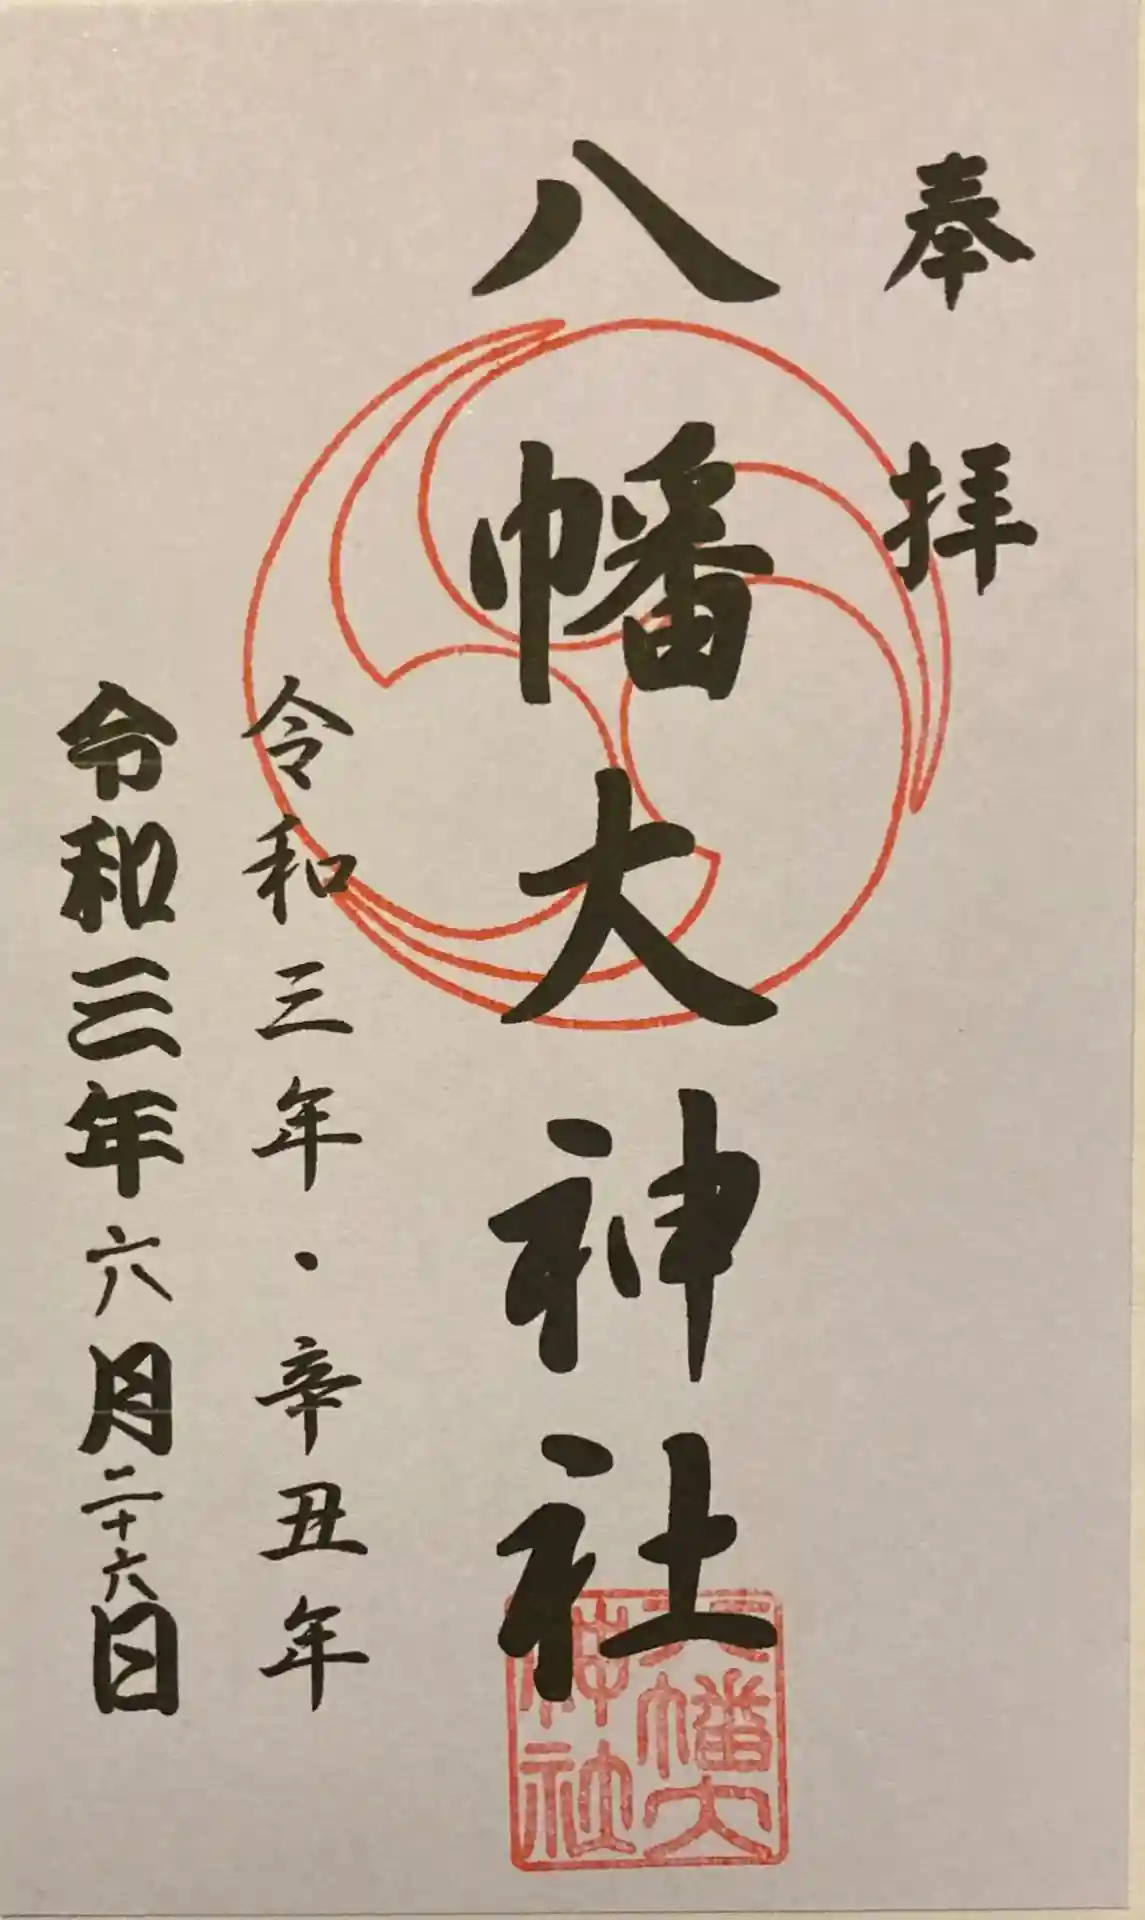 奉拝
八幡大神社
八幡大神社
令和三年・辛丑年
令和三年六月二十六日